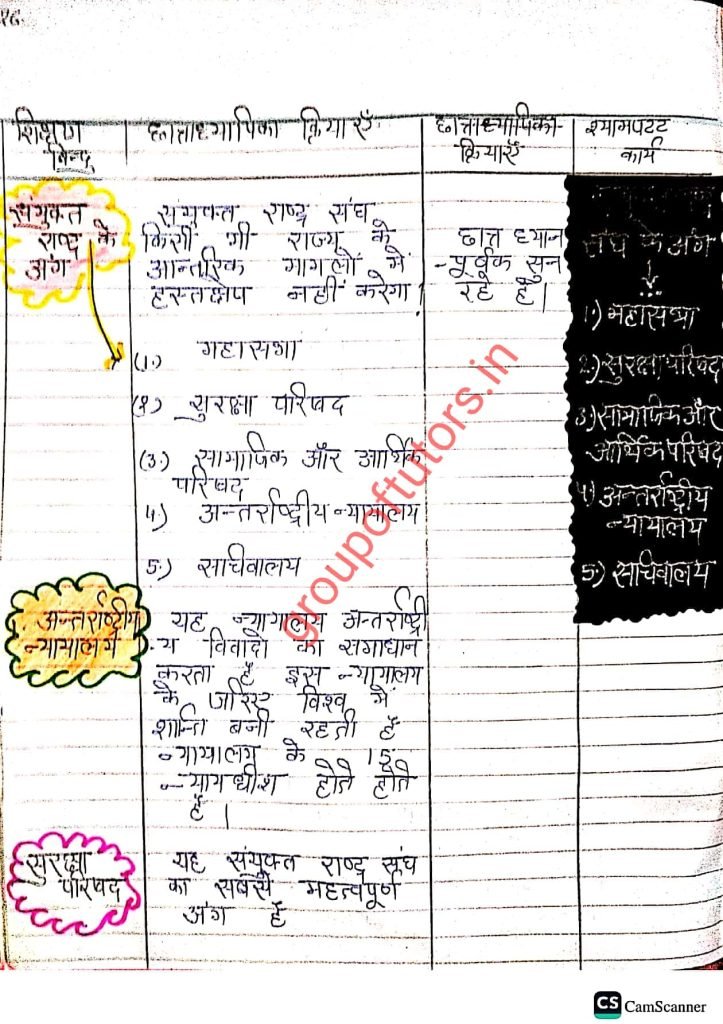 शिक्षण
बिन्दु
छात्राध्यापिका क्रियाएँ
छात्राध्यापिका
क्रियाएँ
श्यामपटट
कार्य
संयुक्त
राष्ट्र के
अंग
संयुक्त राष्ट्र संघ
किसी भी राज्य के
आन्तरिक मागलों में
हस्तक्षेप नहीं करेगा।
(1.) महासभा
(2.) सुरक्षा परिषद
(3.) सामाजिक और आर्थिक
परिषद
4.) अन्तर्राष्ट्रीय न्यायालय
5.) सचिवालय
छात्र ध्यान
-पूर्वक सुन
रहे हैं।
संघ के अंग
1.) महासभा
2.) सुरक्षा परिषद
3.) सामाजिक और
आर्थिक परिषद
4) अन्तर्राष्ट्रीय
न्यायालय
5.) सचिवालय
अन्तर्राष्ट्रीय
न्यायालय
यह न्यायालय अन्तर्राष्ट्री
-य विवादो का समाधान
करता है इस न्यायालय
के जरिए विश्व में
शान्ति बनी रहती है
न्यायालय के 15
न्यायधीश होते होते
हैं।
सुरक्षा
परिषद
यह संयुक्त राष्ट्र संघ
का सबसे महत्वपूर्ण
अंग है
groupoftutors.in
CS CamScanner